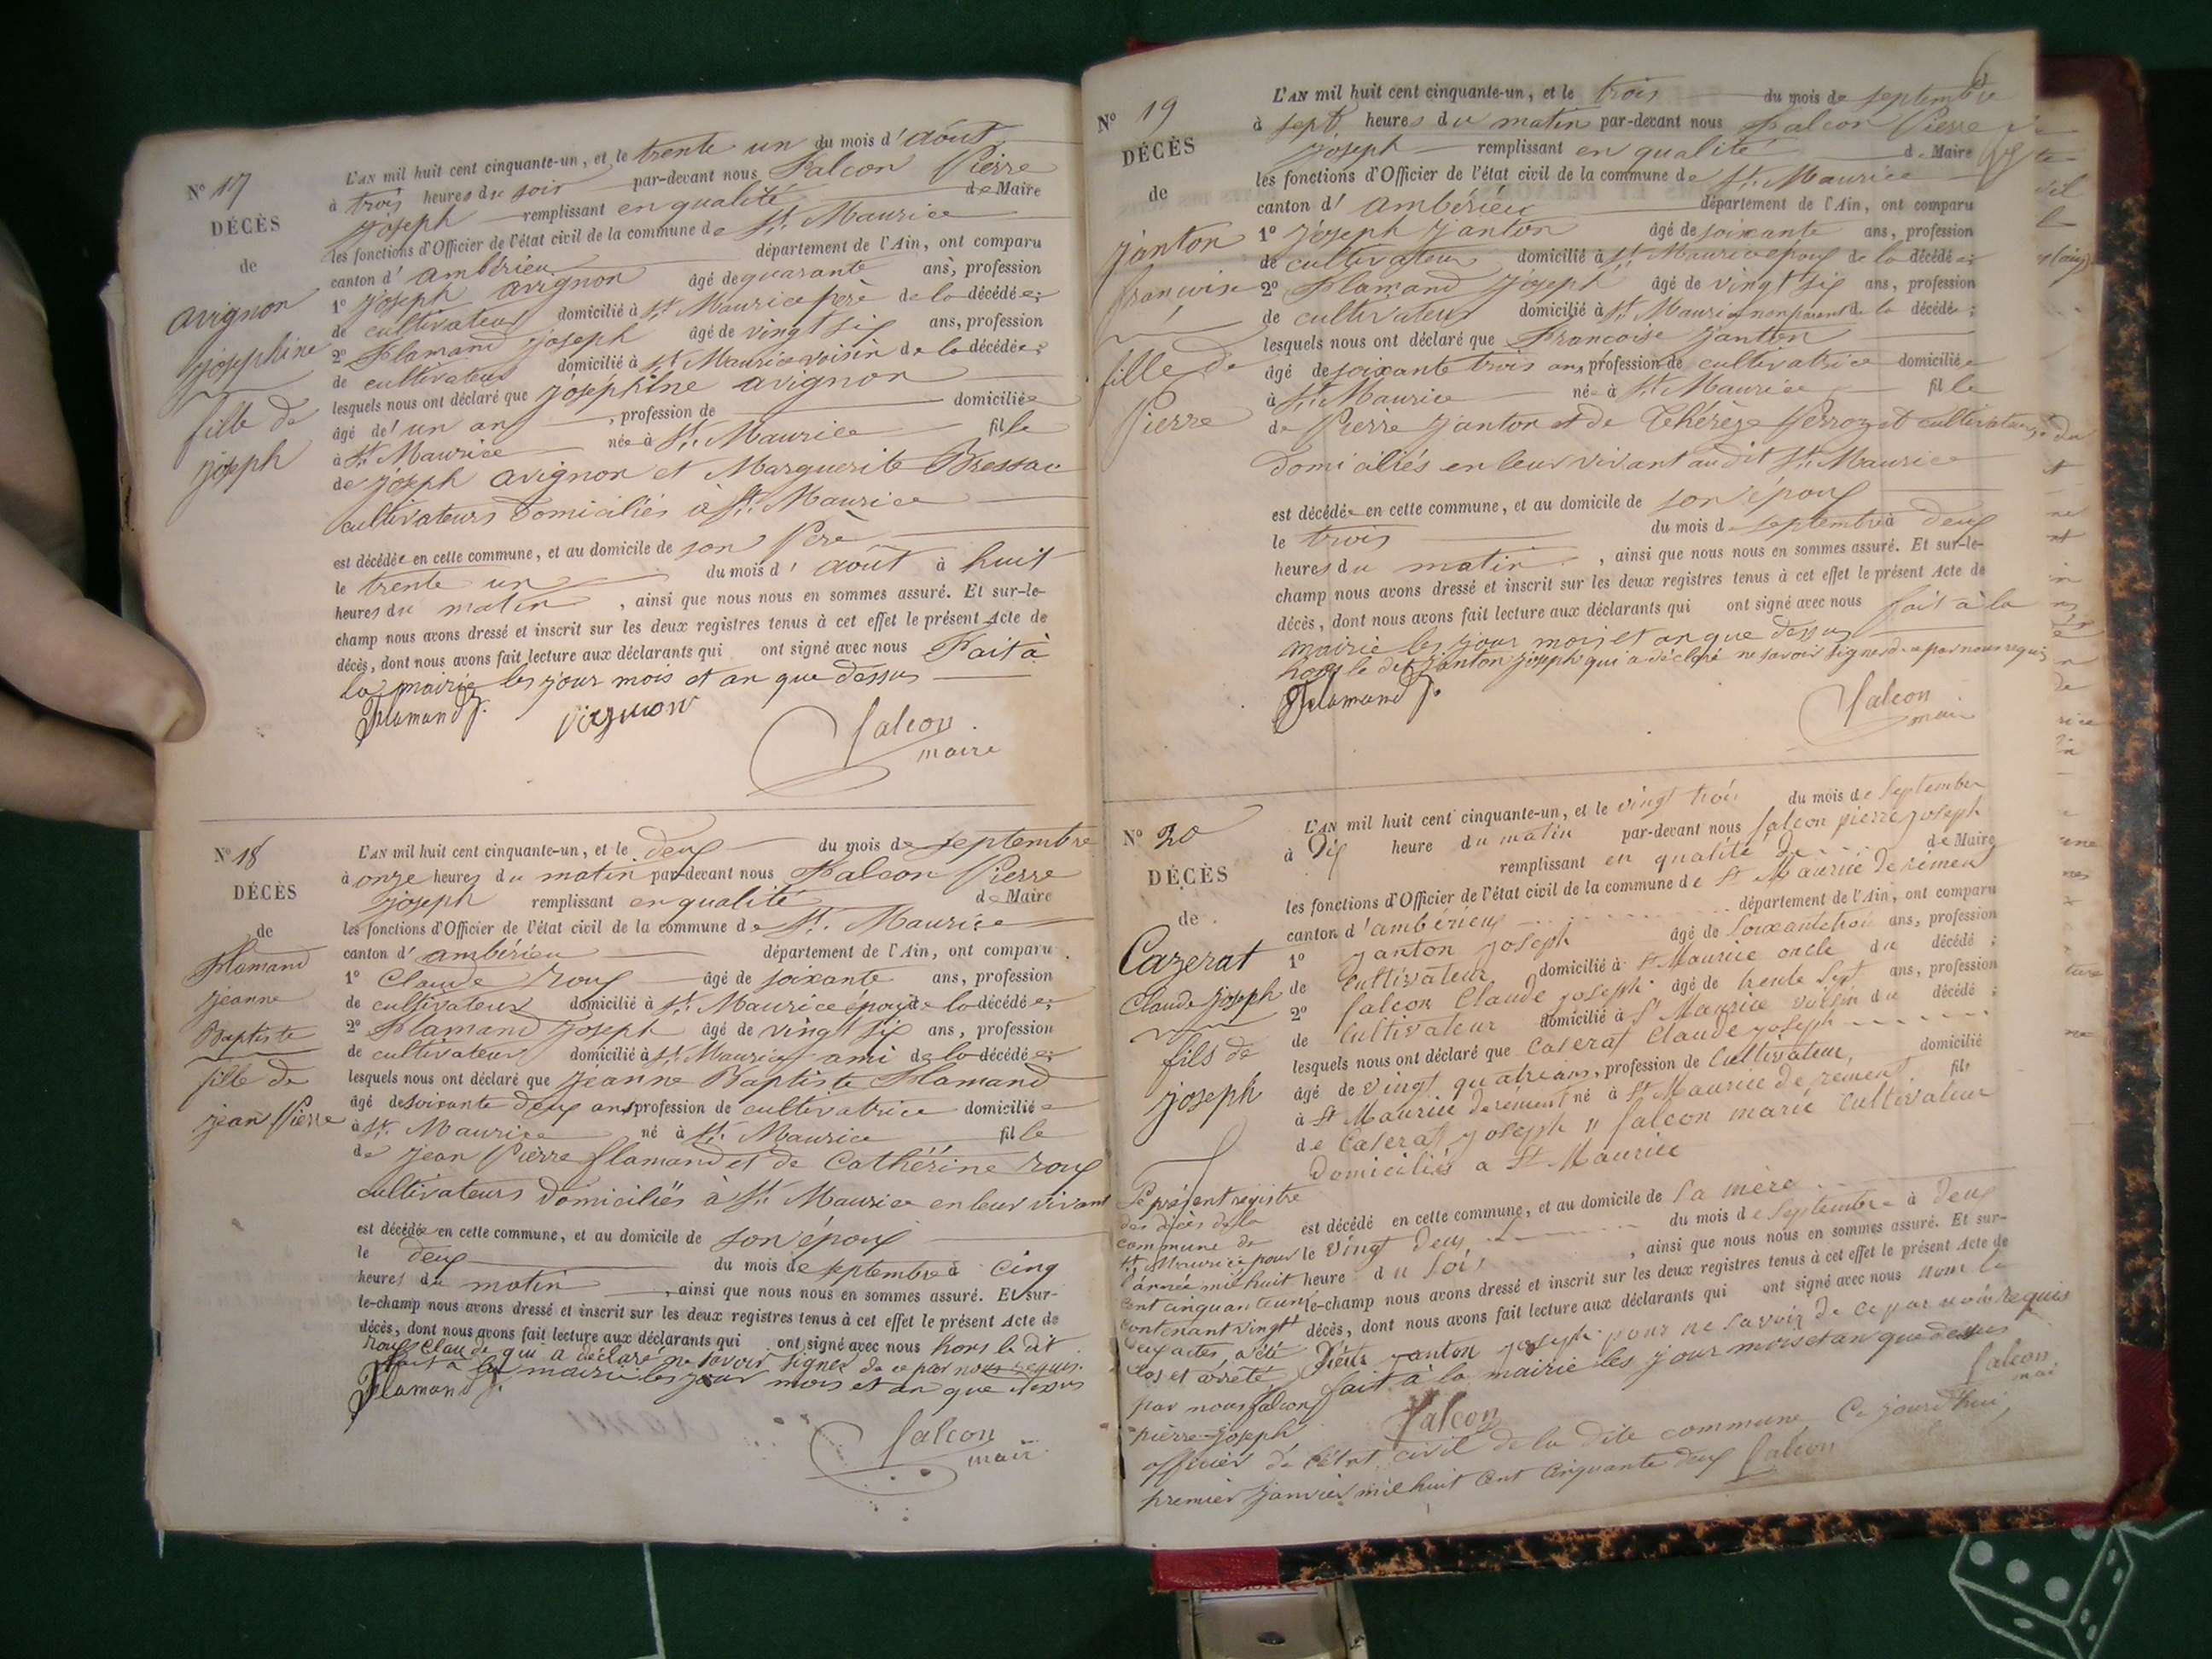 Nº 17
DÉCÈS
de
avignon
joséphine
fille de
joseph
L'AN mil huit cent cinquante-un, et le trente un du mois d'août
à trois heures du soir par-devant nous Falcon Pierre
joseph remplissant en qualité de Maire
les fonctions d'Officier de l'état civil de la commune de St. Maurice
canton d'ambérieu département de l'Ain, ont comparu
1º joseph avignon âgé de quarante ans, profession
de cultivateur domicilié à St Maurice père de la décédée;
2º Flamand joseph âgé de vingt six ans, profession
de cultivateur domicilié à St Maurice voisin de la décédée;
lesquels nous ont déclaré que joséphine avignon
âgé de un an, profession de domiciliée
à St. Maurice née à St. Maurice fille
de joseph avignon et Marguerite Bressac
cultivateurs domiciliés à St. Maurice
est décédée en cette commune, et au domicile de son Père
le trente un du mois d'août à huit
heures du matin, ainsi que nous nous en sommes assuré. Et sur-le-
champ nous avons dressé et inscrit sur les deux registres tenus à cet effet le présent Acte de
décès, dont nous avons fait lecture aux déclarants qui ont signé avec nous Fait à
la mairie les jour mois et an que dessus
Flamand J. falcon
maire
Nº 18
DÉCÈS
de
Flamand
jeanne
Baptiste
fille de
jean Pierre
L'AN mil huit cent cinquante-un, et le deux du mois de septembre
à onze heures du matin par-devant nous Falcon Pierre
joseph remplissant en qualité de Maire
les fonctions d'Officier de l'état civil de la commune de St. Maurice
canton d'ambérieu département de l'Ain, ont comparu
1º Claude Roux âgé de soixante ans, profession
de cultivateur domicilié à St. Maurice époux de la décédée;
2º Flamand joseph âgé de vingt six ans, profession
de cultivateur domicilié à St. Maurice ami de la décédée;
lesquels nous ont déclaré que jeanne Baptiste Flamand
âgé de soixante deux ans profession de cultivatrice domiciliée
à St. Maurice né à St. Maurice fille
de jean Pierre flamand et de Cathérine roux
cultivateurs domiciliés à St. Maurice en leur vivant
est décédée en cette commune, et au domicile de son époux
le deux du mois de septembre à cinq
heures du matin, ainsi que nous nous en sommes assuré. Et sur-
le-champ nous avons dressé et inscrit sur les deux registres tenus à cet effet le présent Acte de
décès, dont nous avons fait lecture aux déclarants qui ont signé avec nous hors le dit
roux Claude qui a déclaré ne savoir signer de ce par nous requis.
fait à la mairie les jour mois et an que dessus
Flamand J.
falcon
maire
Nº 19
DÉCÈS
de
janton
françoise
fille de
Pierre
L'AN mil huit cent cinquante-un, et le trois du mois de septembre
à sept heures du matin par-devant nous Falcon Pierre
joseph remplissant en qualité de Maire
les fonctions d'Officier de l'état civil de la commune de St. Maurice
canton d'ambérieu département de l'Ain, ont comparu
1º joseph janton âgé de soixante ans, profession
de cultivateur domicilié à St Maurice époux de la décédée
2º Flamand joseph âgé de vingt six ans, profession
de cultivateur domicilié à St. Maurice non parent de la décédée;
lesquels nous ont déclaré que Francoise janton
âgé de soixante trois ans, profession de cultivatrice domiciliée
à St. Maurice née à St. Maurice fille
de Pierre janton et de Thérèze Perrozet cultivateurs
domiciliés en leur vivant au dit St. Maurice
est décédée en cette commune, et au domicile de son époux
le trois du mois de septembre à deux
heures du matin, ainsi que nous nous en sommes assuré. Et sur-le-
champ nous avons dressé et inscrit sur les deux registres tenus à cet effet le présent Acte de
décès, dont nous avons fait lecture aux déclarants qui ont signé avec nous fait à la
mairie les jour mois et an que dessus
hors le dit janton joseph qui a déclaré ne savoir signer de ce par nous requis
Flamand J.
falcon
maire
Nº 20
DÉCÈS
de
Cazerat
Claude joseph
fils de
joseph
L'AN mil huit cent cinquante-un, et le vingt trois du mois de septembre
à Dix heure du matin par-devant nous falcon pierre joseph
remplissant en qualité de de Maire
les fonctions d'Officier de l'état civil de la commune de St Maurice de rémens
canton d'ambérieux département de l'Ain, ont comparu
1º janton joseph âgé de soixante trois ans, profession
de cultivateur domicilié à St Maurice oncle du décédé;
2º falcon Claude joseph âgé de trente sept ans, profession
de cultivateur domicilié à St Maurice voisin du décédé;
lesquels nous ont déclaré que Caserat Claude joseph
âgé de vingt quatre ans, profession de cultivateur, domicilié
à St Maurice de rement né à St Maurice de rement fils
de Caserat joseph " falcon marie cultivateur
domiciliés a St Maurice
est décédé en cette commune, et au domicile de sa mère
le vingt deux du mois de septembre à deux
heure du soir, ainsi que nous nous en sommes assuré. Et sur-
le-champ nous avons dressé et inscrit sur les deux registres tenus à cet effet le présent Acte de
décès, dont nous avons fait lecture aux déclarants qui ont signé avec nous
janton joseph pour ne savoir de ce par nous requis
fait à la mairie les jour mois et an que dessus
falcon
falcon
mai
Le présent registre
des décès de la
commune de
St Maurice pour
l'année mil huit
cent cinquante un
contenant vingt
actes, a été
clos et arrêté
par nous falcon
pierre-joseph
officier de l'état civil de la dite commune Ce jourd'hui,
premier janvier mil huit cent cinquante deux falcon